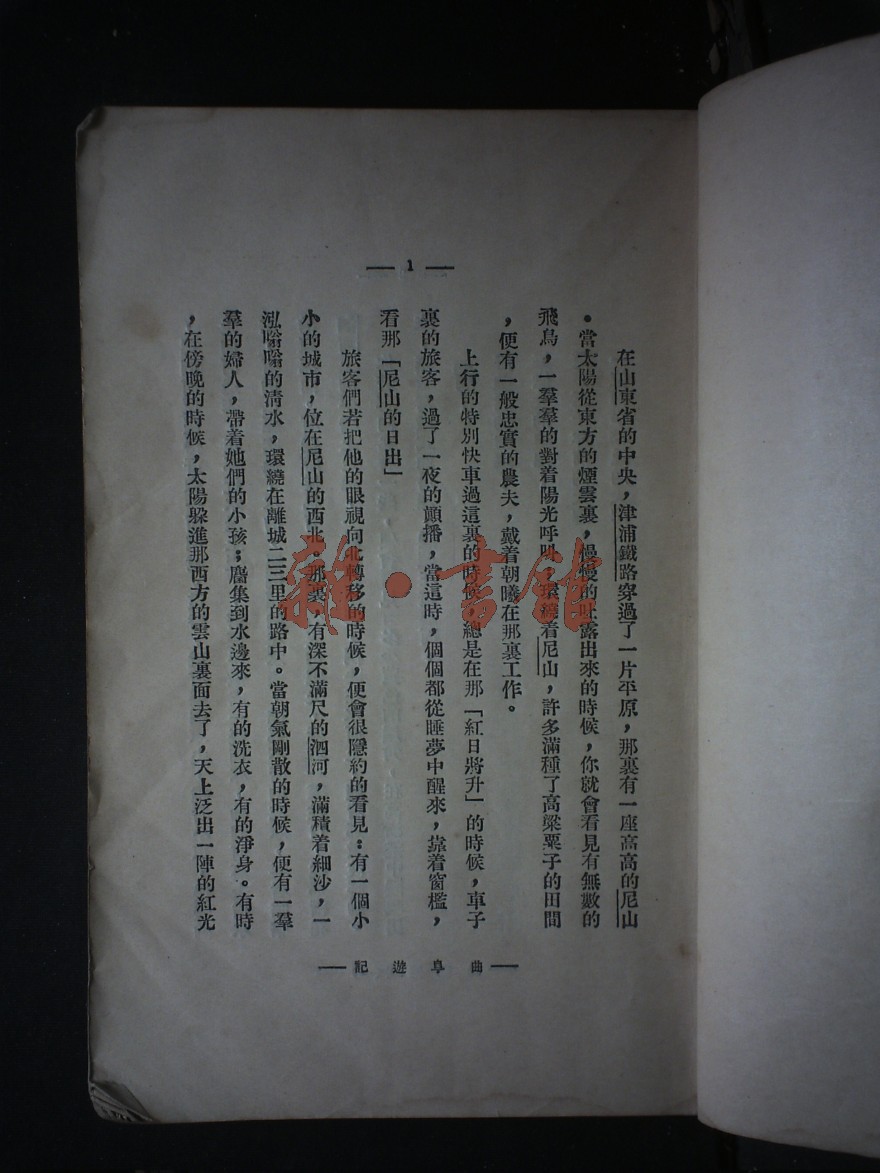 — 1 —
在山東省的中央，津浦鐵路穿過了一片平原，那裏有一座高高的尼山
。當太陽從東方的煙雲裏，慢慢的吐露出來的時候，你就會看見有無數的
飛鳥，一羣羣的對着陽光呼叫，環繞着尼山，許多滿種了高粱粟子的田間
，便有一般忠實的農夫，戴着朝曦在那裏工作。
上行的特別快車過這裏的時候，總是在那「紅日將升」的時候，車子
裏的旅客，過了一夜的顚播，當這時，個個都從睡夢中醒來，靠着窗檻，
看那「尼山的日出」
旅客們若把他的眼視向北轉移的時候，便會很隱約的看見：有一個小
小的城市，位在尼山的西北，那裏，有深不滿尺的泗河，滿積着細沙，一
泓嗡嗡的清水，環繞在離城二三里的路中。當朝氣剛散的時候，便有一羣
羣的婦人，帶着她們的小孩；麕集到水邊來，有的洗衣，有的淨身。有時
，在傍晚的時候，太陽躱進那西方的雲山裏面去了，天上泛出一陣的紅光
— 曲阜遊記 —
雜·書館